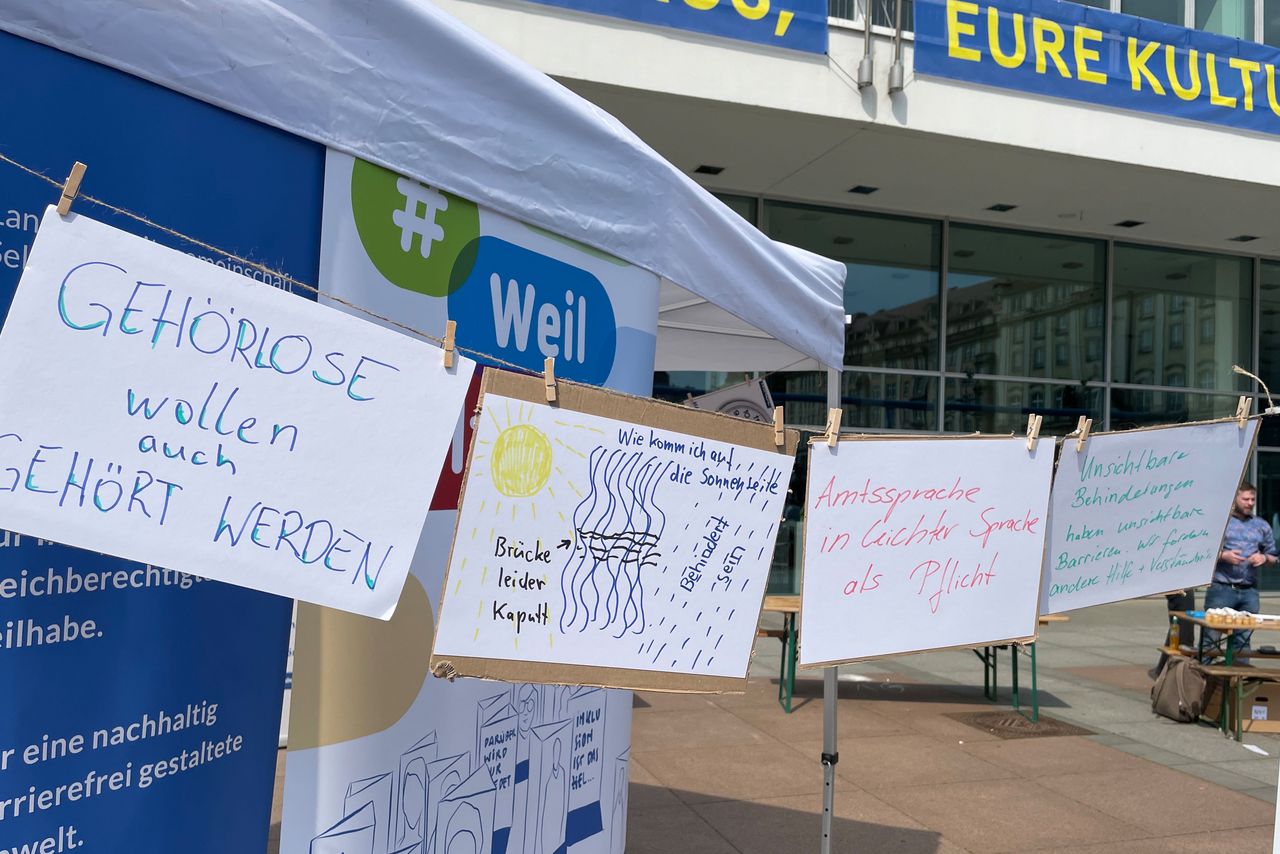 EURE KULTU
#
Weil
GEHÖRLOSE
wollen
auch
GEHÖRT WERDEN
Wie komm ich auf
die Sonnenseite
Brücke
leider
Kaputt
Behindert
sein
Amtssprache
in leichter Sprache
als Pflicht
Unsichtbare
Behinderungen
haben unsichtbare
Barrieren. Wir fordern
andere Hilfe + Verständnis
eichberechtig
eilhabe.
r eine nachhaltig
rrierefrei gestaltete
welt.
DARÜBER
WIRD
INKLU
SION
IST DAS